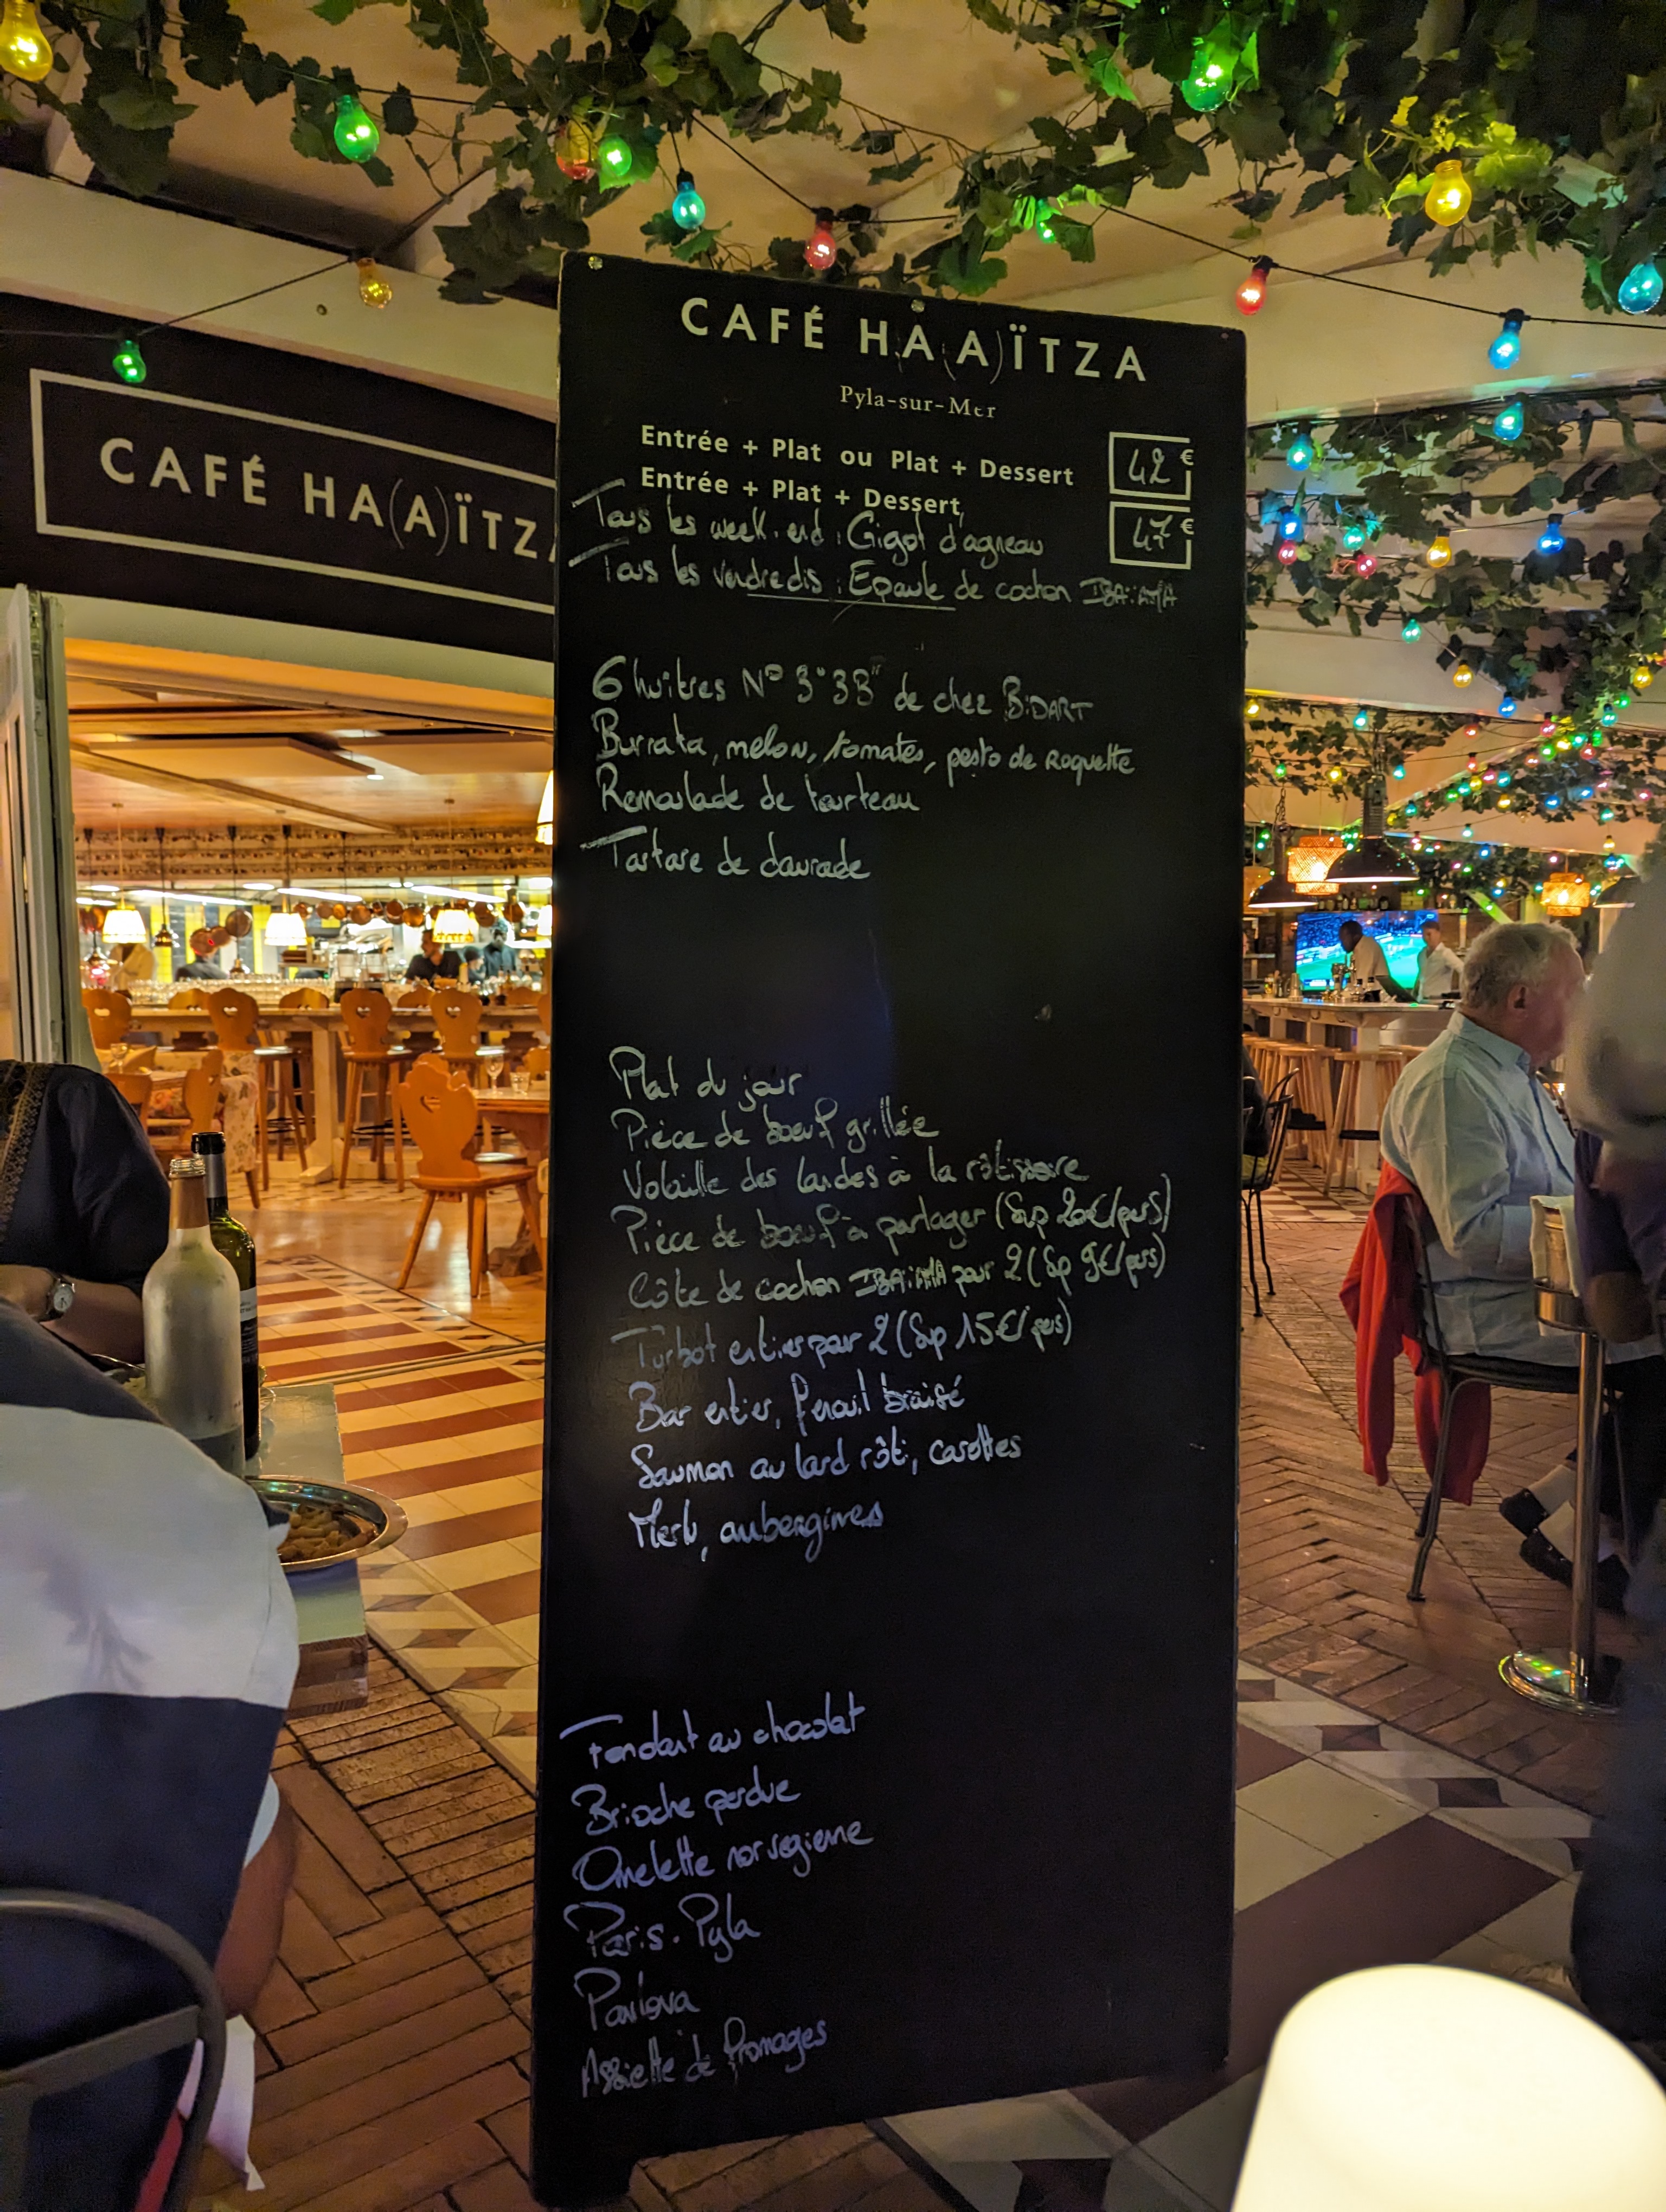 CAFÉ HA(A)ÏTZA
Pyla-sur-Mer
Entrée + Plat ou Plat + Dessert 42 €
Entrée + Plat + Dessert 47 €
Tous les week.end : Gigot d'agneau
Tous les vendredis : Epaule de cochon IBAÏAMA
6 huitres N° 3 "33" de chez BiDART
Burrata, melon, tomates, pesto de Roquette
Remoulade de tourteau
Tartare de daurade
Plat du jour
Pièce de boeuf grillée
Volaille des landes à la rôtissoire
Pièce de boeuf à partager (Sup 20€/pers)
Côte de cochon IBAÏAMA pour 2 (Sp 9€/pers)
Turbot entier pour 2 (Sup 15€/pers)
Bar entier, fenouil braisé
Saumon au lard rôti, carottes
Merlu, aubergines
Fondant au chocolat
Brioche perdue
Omelette norvegienne
Paris. Pyla
Pavlova
Assiette de fromages
CAFÉ HA(A)ÏTZ